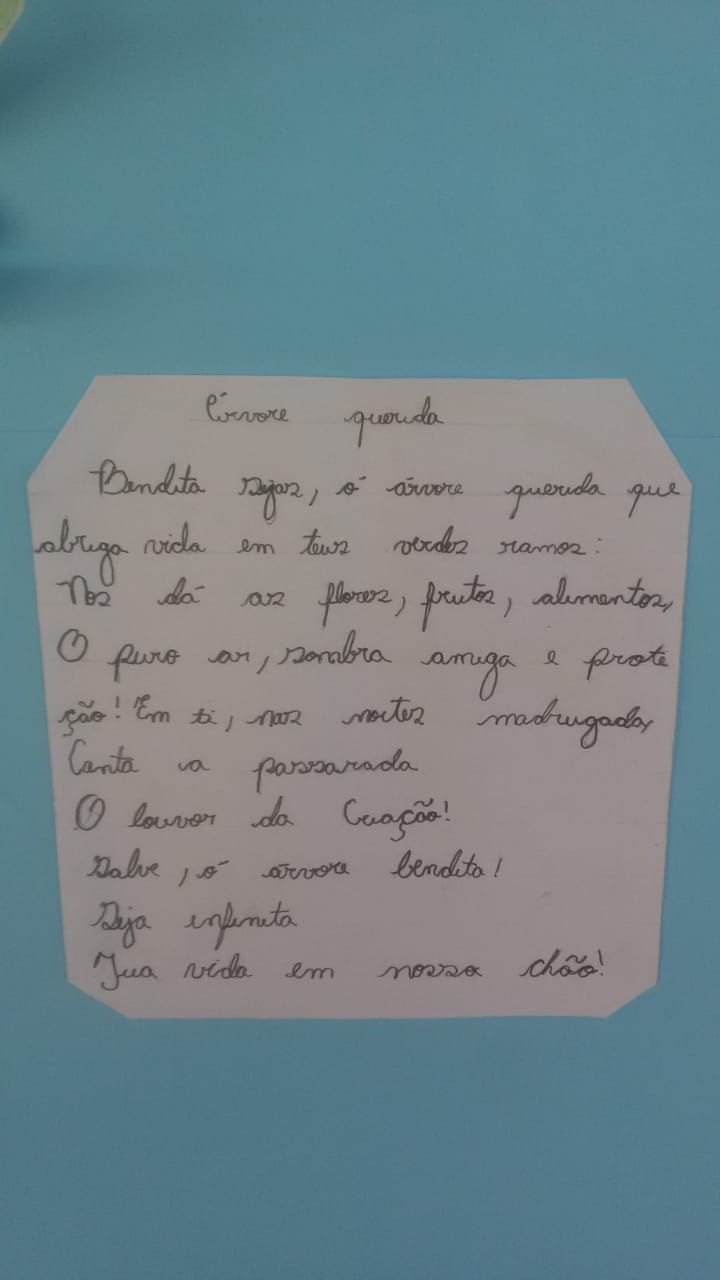 Árvore querida
Bendita sejas, ó árvore querida que
abriga vida em teus verdes ramos:
Nos dá as flores, frutos, alimentos,
O puro ar, sombra amiga e prote
ção! Em ti, nas noites madrugadas,
Canta a passarada
O louvor da Criação!
Salve, ó árvore bendita!
Seja infinita
Tua vida em nosso chão!